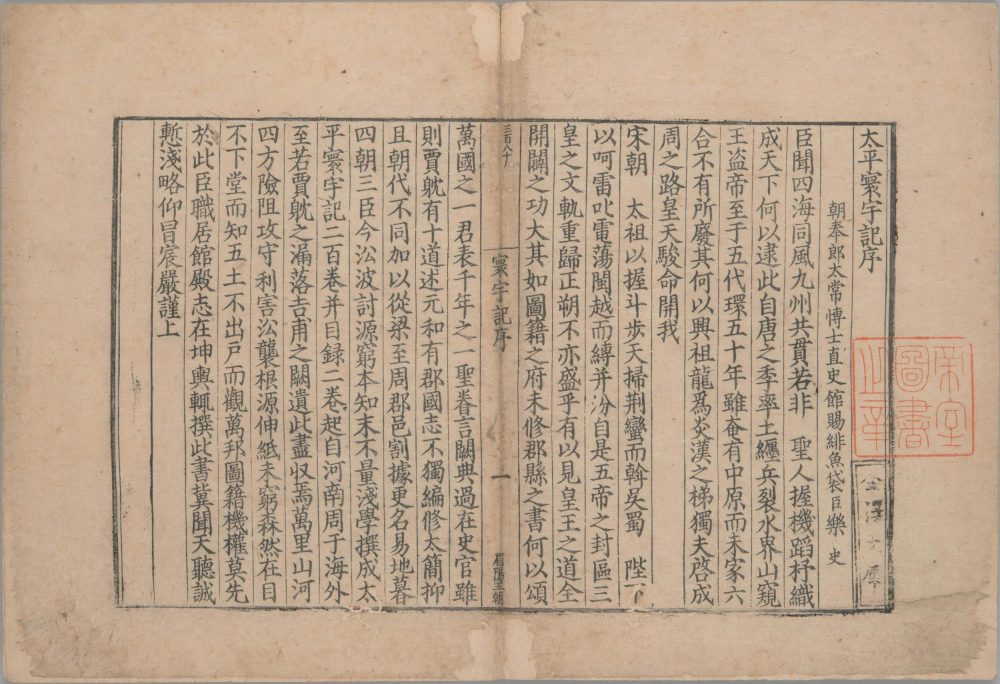 太平寰宇記序
朝奉郎太常博士直史館賜緋魚袋臣樂 史
臣聞四海同風九州共貫若非 聖人握機蹈杼織
成天下何以逮此自唐之季率土纏兵裂水界山窺
王盗帝至于五代環五十年雖奄有中原而未家六
合不有所廢其何以興祖龍爲炎漢之梯獨夫啓成
周之路皇天駿命開我
宋朝 太祖以握斗步天掃荆蠻而斡吳蜀 陛下
以呵雷叱電蕩閩越而縛并汾自是五帝之封區三
皇之文軌重歸正朔不亦盛乎有以見皇王之道全
開闢之功大其如圖籍之府未修郡縣之書何以頌
三百八十
寰宇記序
一
眉陽王朝
萬國之一君表千年之一聖眷言闕典過在史官雖
則賈躭有十道述元和有郡國志不獨編修太簡抑
且朝代不同加以從梁至周郡邑割據更名易地暮
四朝三臣今沿波討源窮本知末不量淺學撰成太
平寰宇記二百卷并目録二卷起自河南周于海外
至若賈躭之漏落吉甫之闕遺此盡収焉萬里山河
四方險阻攻守利害沿襲根源伸紙未窮森然在目
不下堂而知五土不出戸而觀萬邦圖籍機權莫先
於此臣職居館殿志在坤輿輒撰此書冀聞天聽誠
慙淺略仰冒宸嚴謹上
帝室
圖書
之章